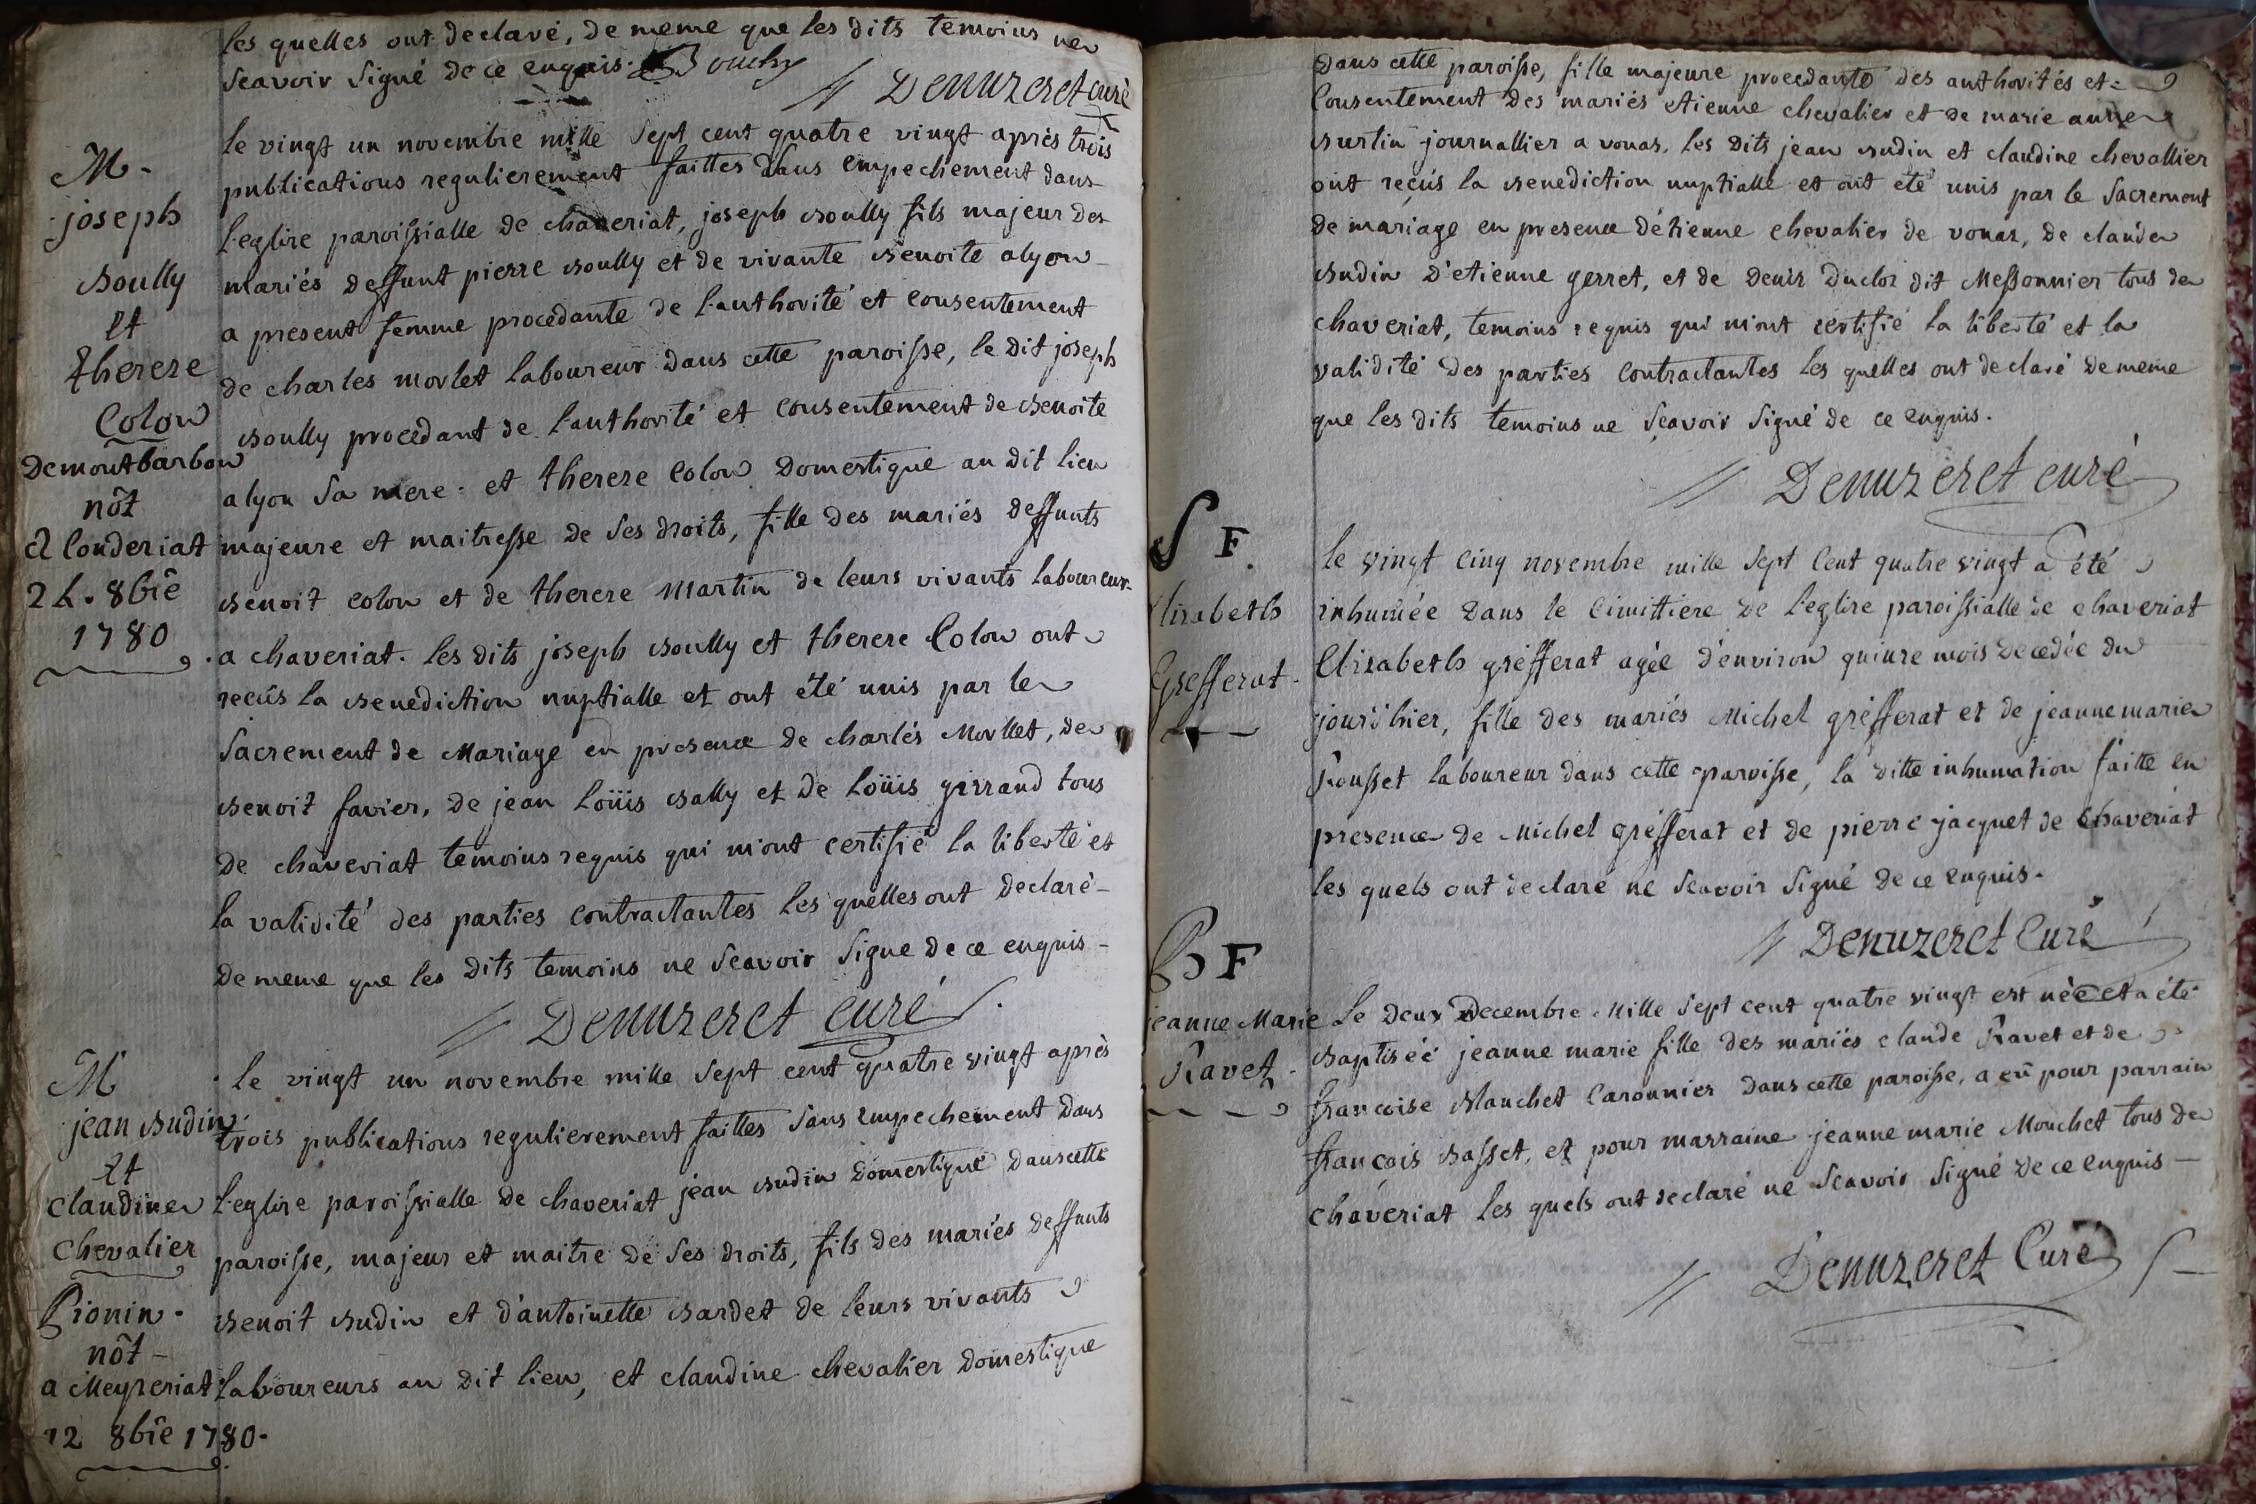 les quelles ont declaré, de meme que les dits temoins ne
scavoir signé de ce enquis. Bouchy
Denuzeret curé
M.
joseph
Boully
et
therese
Colon
Demontbarbon
nôt
a Conderiat
24. 8bre
1780
le vingt un novembre mille sept cent quatre vingt après trois
publications regulierement faittes sans empechement dans
l'eglise paroissialle de chaveriat, joseph Boully fils majeur des
mariés deffunt pierre Boully et de vivante Benoite alyon
a present femme procedante de l'authorité et consentement
de charles morlet laboureur dans cette paroisse, le dit joseph
Boully procedant de l'authorité et consentement de Benoite
alyon sa mere. et therese Colon domestique au dit lieu
majeure et maitresse de ses droits, fille des mariés deffunts
Benoit colon et de therese martin de leurs vivants laboureur
a chaveriat. les dits joseph Boully et therese Colon ont
reçûs la Benediction nuptialle et ont été unis par le
sacrement de Mariage en presence de charlés Morllet, de
Benoit favier, de jean Loüis Bally et de Loüis girraud tous
de chaveriat temoins requis qui m'ont certifié la liberté et
la validité des parties contractantes les quelles ont declaré
de meme que les dits temoins ne scavoir signe de ce enquis
Denuzeret curé
M
jean Budin
Et
claudine
Chevalier
Pionin.
nôt
a Meyzeriat
12 8bre 1780.
le vingt un novembre mille sept cent quatre vingt après
trois publications regulierement faittes sans empechement dans
l'eglise paroissialle de chaveriat jean Budin domestique dans cette
paroisse, majeur et maitre de ses droits, fils des mariés deffunts
Benoit Budin et d'antoinette Bardet de leurs vivants
laboureurs au dit lieu, et claudine chevalier domestique
dans cette paroisse, fille majeure procedante des authorités et
Consentement des mariés etienne chevalier et de marie anne
Burtin journallier a vonas. les dits jean Budin et claudine chevallier
ont reçûs la Benediction nuptialle et ont eté unis par le sacrement
de mariage en presence détienne chevalier de vonas, de claude
Budin d'etienne gerret, et de denis Duclos dit Messonnier tous de
chaveriat, temoins requis qui m'ont certifié la liberté et la
validité des parties contractantes les quelles ont declaré de meme
que les dits temoins ne scavoir signé de ce enquis.
Denuzeret curé
S F.
Elisabeth
Grefferat.
le vingt cinq novembre mille sept cent quatre vingt a été
inhumée dans le cimittiere de l'eglise paroissialle de chaveriat
Elisabeth grefferat agée d'environ quinze mois decedée du
jour d'hier, fille des mariés Michel grefferat et de jeanne marie
Rousset laboureur dans cette paroisse, la ditte inhumation faitte en
presence de Michel grefferat et de pierre jacquet de chaveriat
les quels ont declaré ne scavoir signé de ce enquis.
Denuzeret Curé
B F
jeanne Marie
Ravet.
le deux Decembre Mille sept cent quatre vingt est née et a été
Baptisée jeanne marie fille des mariés claude Ravet et de
françoise Mauchet Caronnier dans cette paroisse, a eû pour parrain
françois Basset, et pour marraine jeanne marie Mouchet tous de
chaveriat les quels ont declaré ne scavoir signé de ce enquis
Denuzeret Curé